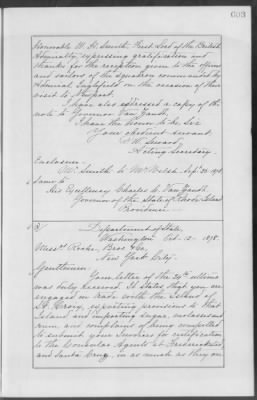 603
Honorable W. H. Smith, First Lord of the British
Admiralty, expressing gratification and
thanks for the reception given to the officers
and sailors of the squadron commanded by
Admiral Inglefield on the occasion of their
visit to Newport.
I have also addressed a copy of the
note to Governor Van Zandt.
I have the honor to be, Sir
Your obedient servant
F. W. Seward,
Acting Secretary
Enclosure:
Mr Smith to Mr Welsh. Sep. 1878
Same to
His Excellency Charles C. Van Zandt
Governor of the State of Rhode Island
Providence
Department of State
Washington Oct. 12 1878.
Messrs. Roche Bros & Co,
New York City.
Gentlemen:
Your letter of the 24th ultimo
was duly received. It states that you are
engaged in trade with the Island of
St. Croix, exporting provisions to that
Island and importing sugar, molasses and
rum, and complains of being compelled
to submit your Invoices for certification
to the Consular Agents at Frederiksted
and Santa Cruz, in as much as they on